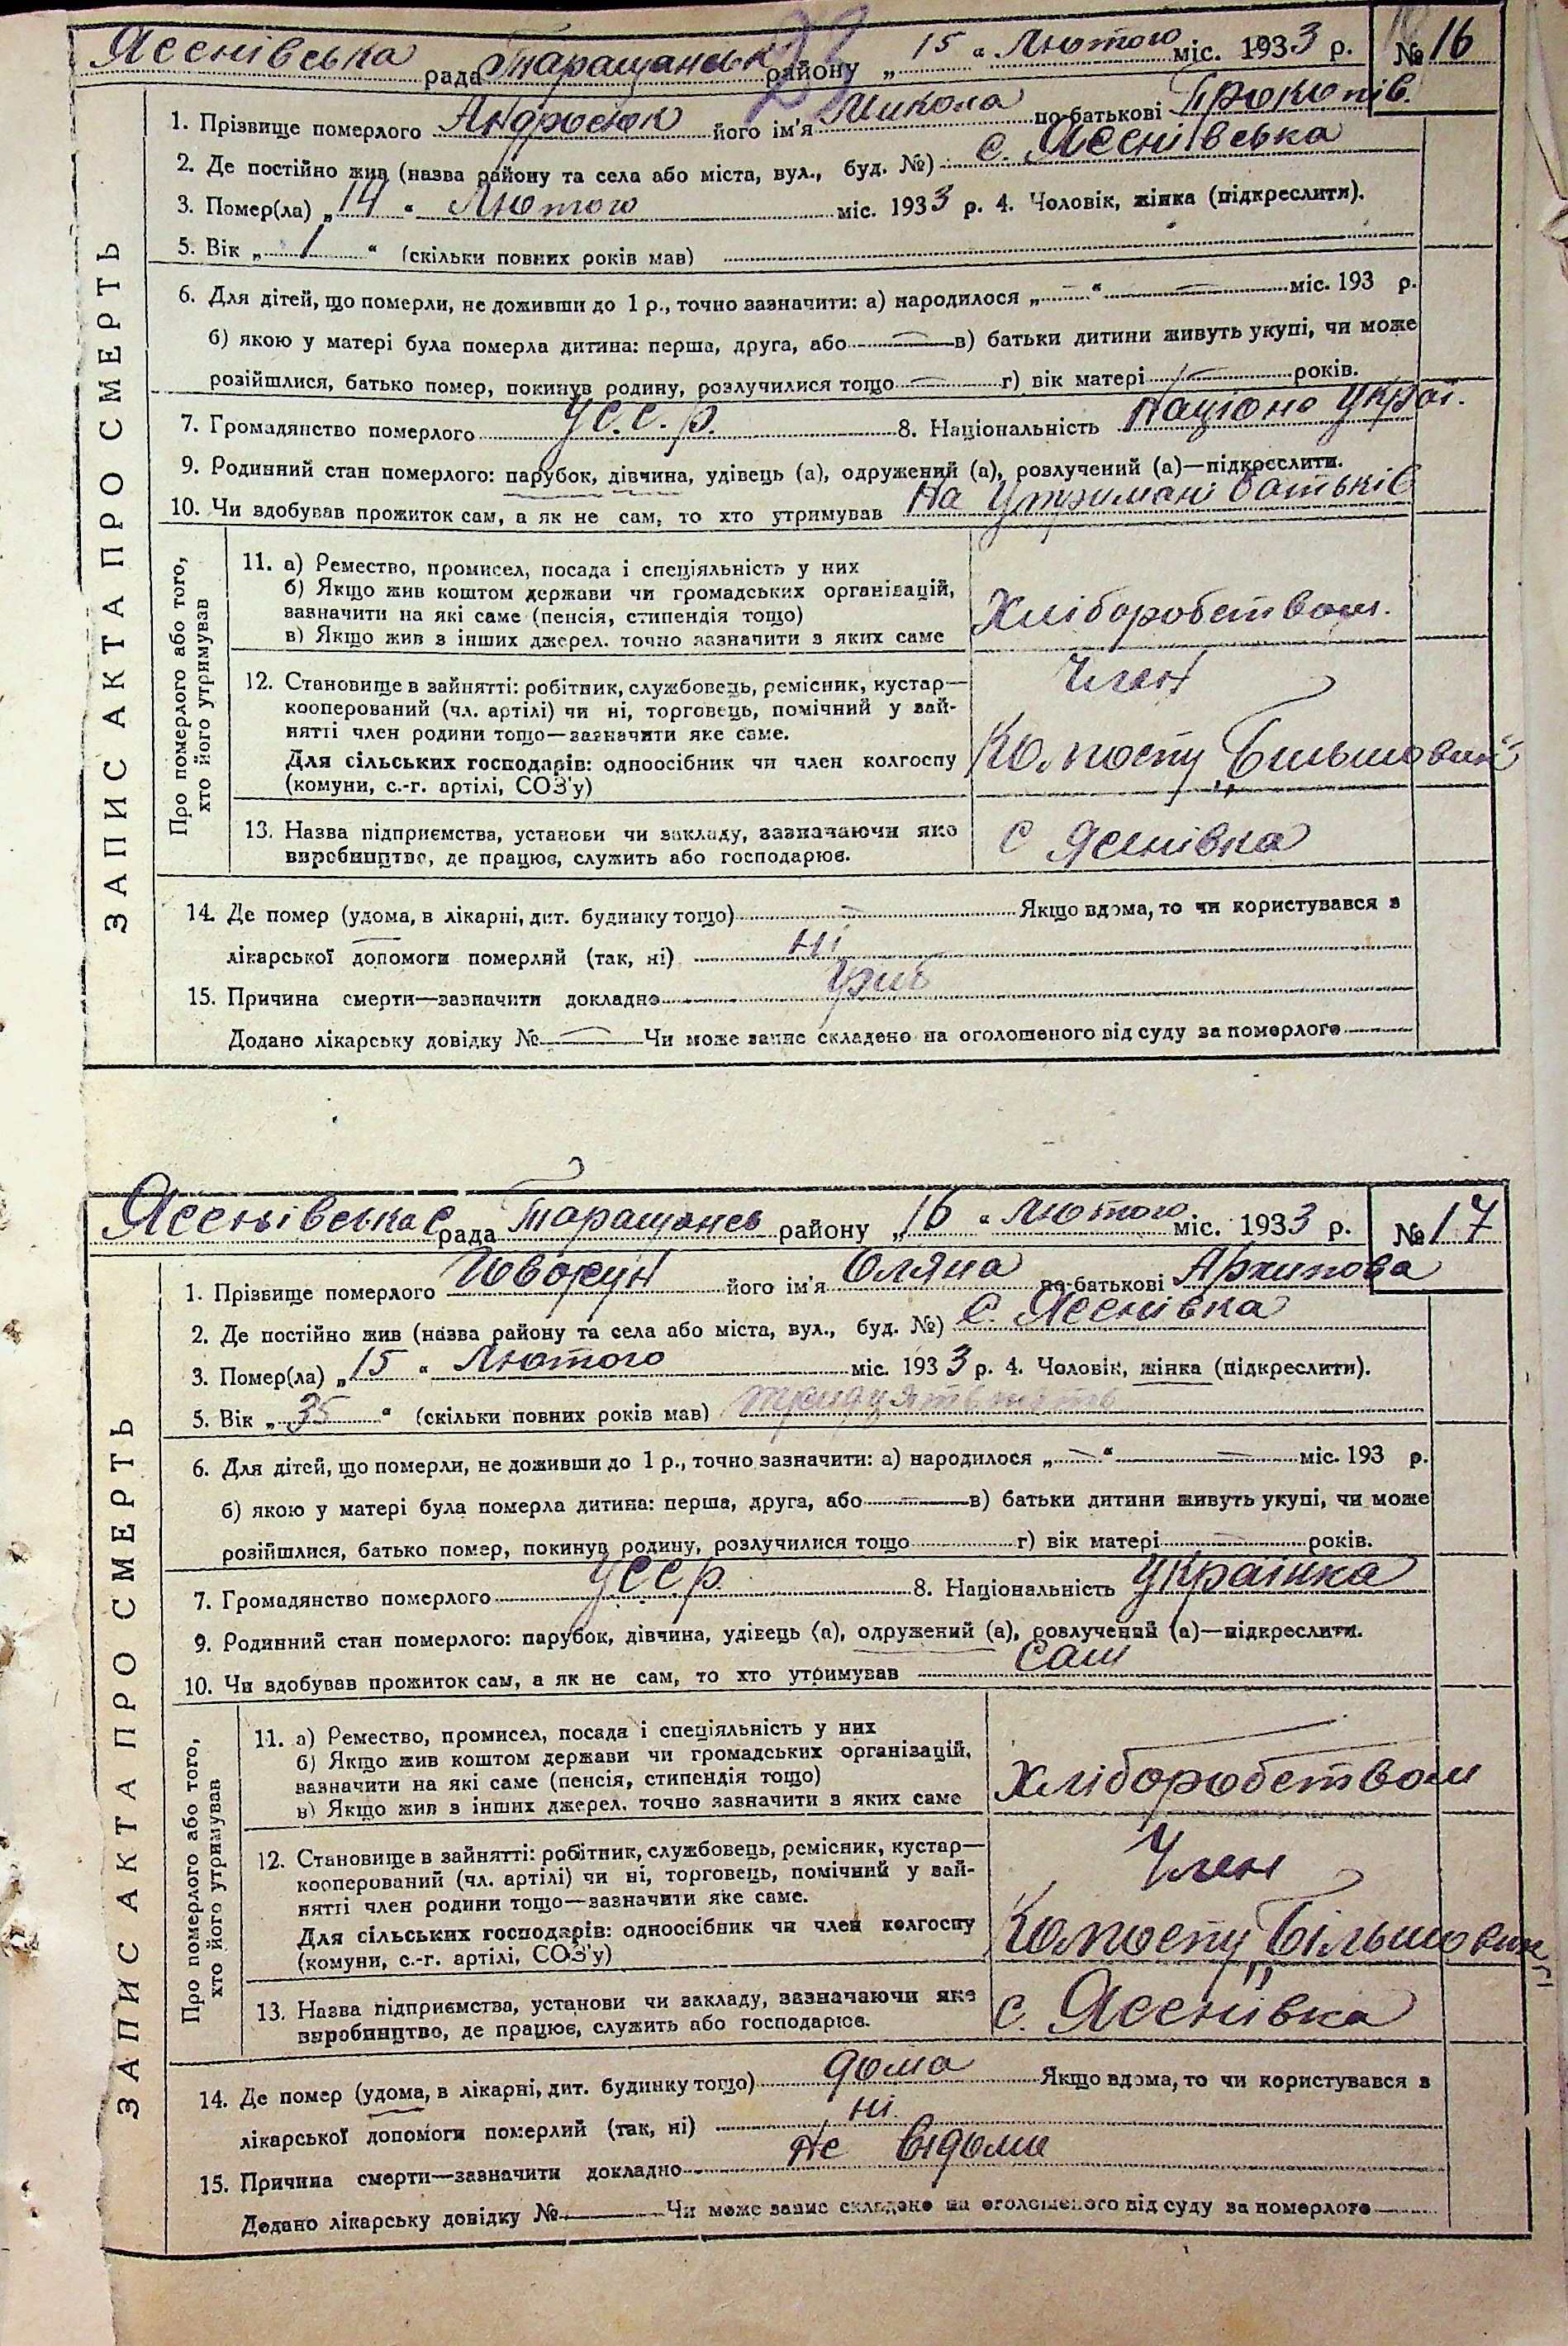 Ясенівська рада Таращанськ району „15“ Лютого міс. 1933 р. № 16
1. Прізвище померлого Андросюк його ім'я Микола по-батькові Прокопів.
2. Де постійно жив (назва району та села або міста, вул., буд. №) с. Ясенівська
3. Помер(ла) „14“ Лютого міс. 1933 р. 4. Чоловік, жінка (підкреслити).
5. Вік „1“ (скільки повних років мав)
6. Для дітей, що померли, не доживши до 1 р., точно зазначити: а) народилося „—“ — міс. 193 р.
б) якою у матері була померла дитина: перша, друга, або — в) батьки дитини живуть укупі, чи може
розійшлися, батько помер, покинув родину, розлучилися тощо — г) вік матері — років.
7. Громадянство померлого УС.С.Р. 8. Національність Націона Украї.
9. Родинний стан померлого: парубок, дівчина, удівець (а), одружений (а), розлучений (а)—підкреслити.
10. Чи здобував прожиток сам, а як не сам, то хто утримував На Утримані батьків
ЗАПИС АКТА ПРО СМЕРТЬ
Про померлого або того,
хто його утримував
11. а) Ремество, промисел, посада і спеціяльність у них
б) Якщо жив коштом держави чи громадських організацій,
зазначити на які саме (пенсія, стипендія тощо)
в) Якщо жив з інших джерел. точно зазначити з яких саме
Хліборобством.
12. Становище в зайнятті: робітник, службовець, ремісник, кустар—
кооперований (чл. артілі) чи ні, торговець, помічний у зай-
нятті член родини тощо—зазначити яке саме.
Для сільських господарів: одноосібник чи член колгоспу
(комуни, с.-г. артілі, СОЗ'у)
Член
Колгоспу „Більшовик“
13. Назва підприємства, установи чи закладу, зазначаючи яке
виробництво, де працює, служить або господарює.
с Ясенівка
14. Де помер (удома, в лікарні, дит. будинку тощо) — Якщо вдома, то чи користувався з
лікарської допомоги померлий (так, ні) ні
15. Причина смерти—зазначити докладно
Додано лікарську довідку № — Чи може запис складено на оголошеного від суду за померлого
Ясенівська с рада Таращансь району „16“ Лютого міс. 1933 р. № 17
1. Прізвище померлого Говорун його ім'я Оляна по-батькові Архипова
2. Де постійно жив (назва району та села або міста, вул., буд. №) с. Ясенівка
3. Помер(ла) „15“ Лютого міс. 1933 р. 4. Чоловік, жінка (підкреслити).
5. Вік „35“ (скільки повних років мав) тридцять пять
6. Для дітей, що померли, не доживши до 1 р., точно зазначити: а) народилося „—“ — міс. 193 р.
б) якою у матері була померла дитина: перша, друга, або — в) батьки дитини живуть укупі, чи може
розійшлися, батько помер, покинув родину, розлучилися тощо г) вік матері — років.
7. Громадянство померлого УССР. 8. Національність Українка
9. Родинний стан померлого: парубок, дівчина, удівець (а), одружений (а), розлучений (а)—підкреслити.
10. Чи здобував прожиток сам, а як не сам, то хто утримував Сам
ЗАПИС АКТА ПРО СМЕРТЬ
Про померлого або того,
хто його утримував
11. а) Ремество, промисел, посада і спеціяльність у них
б) Якщо жив коштом держави чи громадських організацій,
зазначити на які саме (пенсія, стипендія тощо)
в) Якщо жив з інших джерел. точно зазначити з яких саме
Хліборобством
12. Становище в зайнятті: робітник, службовець, ремісник, кустар—
кооперований (чл. артілі) чи ні, торговець, помічний у зай-
нятті член родини тощо—зазначити яке саме.
Для сільських господарів: одноосібник чи член колгоспу
(комуни, с.-г. артілі, СОЗ'у)
Член
Колгоспу „Більшовик“
13. Назва підприємства, установи чи закладу, зазначаючи яке
виробництво, де працює, служить або господарює.
с. Ясенівка
14. Де помер (удома, в лікарні, дит. будинку тощо) дома Якщо вдома, то чи користувався з
лікарської допомоги померлий (так, ні) ні
15. Причина смерти—зазначити докладно не відоме
Додано лікарську довідку № Чи може запис складено на оголошеного від суду за померлого